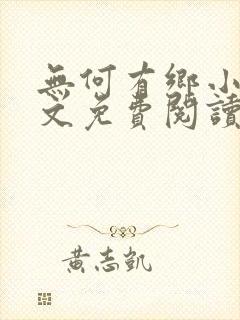 無何有鄉小
文免費閱讀
黃志凱